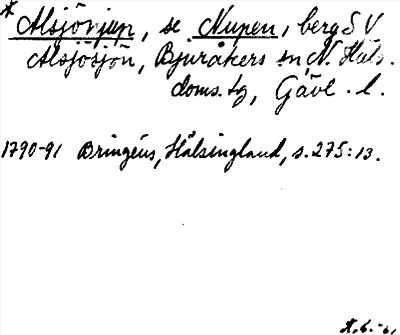 * Alsjönjup, se Nupen, berg S V
Alsjösjön, Bjuråkers sn, N. Häls.
doms. tg, Gävl. l.
1790-91 Bringéus, Hälsingland, s. 275:13.